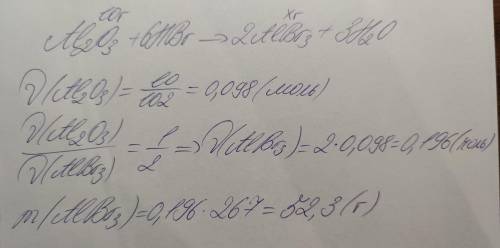 10г хг
Al₂O₃ + 6HBr → 2AlBr₃ + 3H₂O
ν(Al₂O₃) = 10/102 = 0,098 (моль)
ν(Al₂O₃)/ν(AlBr₃) = 1/2 ⇒ ν(AlBr₃) = 2·0,098 = 0,196 (моль)
m(AlBr₃) = 0,196·267 = 52,3 (г)